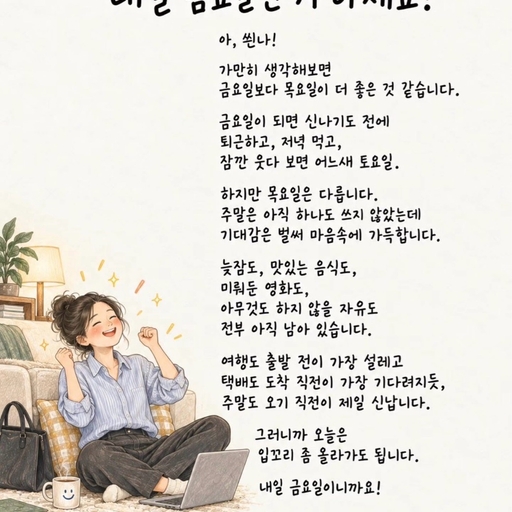 내일 금요일인 거 아세요?
아, 씐나!
가만히 생각해보면
금요일보다 목요일이 더 좋은 것 같습니다.
금요일이 되면 신나기도 전에
퇴근하고, 저녁 먹고,
잠깐 웃다 보면 어느새 토요일.
하지만 목요일은 다릅니다.
주말은 아직 하나도 쓰지 않았는데
기대감은 벌써 마음속에 가득합니다.
늦잠도, 맛있는 음식도,
미뤄둔 영화도,
아무것도 하지 않을 자유도
전부 아직 남아 있습니다.
여행도 출발 전이 가장 설레고
택배도 도착 직전이 가장 기다려지듯,
주말도 오기 직전이 제일 신납니다.
그러니까 오늘은
입꼬리 좀 올라가도 됩니다.
내일 금요일이니까요!